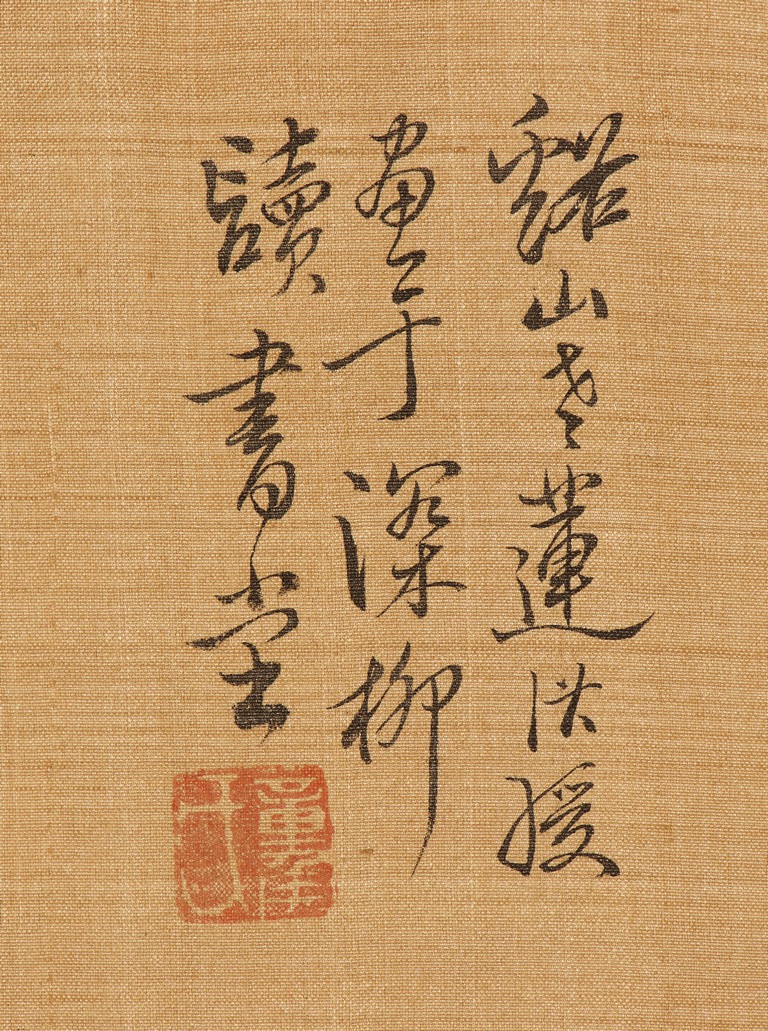 谿山老蓮洪綬
畫于深柳
讀書堂